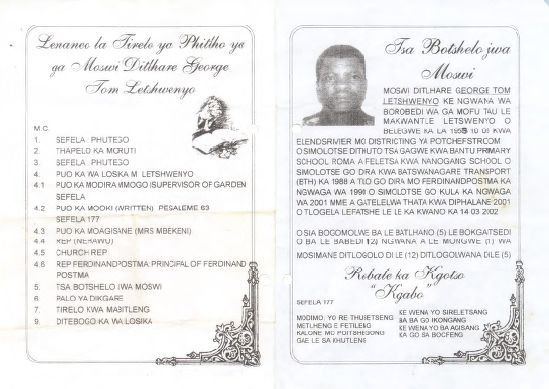 Lenaneo la Tirelo ya Phitlho ya
ga Moswi Ditlhare George
Tom Letshwenyo
M.C.
1. SEFELA PHUTEGO
2. THAPELO KA MORUTI
3. SEFELA PHUTEGO
4. PUO KA WA LOSIKA M LETSHWENYO
4.1 PUO KA MODIRA MMOGO (SUPERVISOR OF GARDEN
SEFELA
4.2 PUO KA MOOKI (WRITTEN) PESALEME 63
SEFELA 177
4.3 PUO KA MOAGISANE (MRS MBEKENI)
4.4 REP (NEHAWU)
4.5 CHURCH REP
4.6 REP FERDINANDPOSTMA PRINCIPAL OF FERDINAND
POSTMA
5. TSA BOTSHELO JWA MOSWI
6. PALO YA DIKGARE
7. TIRELO KWA MABITLENG
9. DITEBOGO KA WA LOSIKA
Tsa Botshelo jwa
Moswi
MOSWI DITLHARE GEORGE TOM
LETSHWENYO KE NGWANA WA
BOROBEDI WA GA MOFU TAU LE
MAKWANTLE LETSWENYO O
BELEGWE KA LA 10 05 KWA
ELENDSRIVIER MO DISTRICTING YA POTCHEFSTROOM
O SIMOLOTSE DITHUTO TSA GAGWE KWA BANTU PRIMARY
SCHOOL ROMA A FELETSA KWA NANOGANG SCHOOL O
SIMOLOTSE GO DIRA KWA BATSWANAGARE TRANSPORT
(BTH) KA 1988 A TLO GO DIRA MO FERDINANDPOSTMA KA
NGWAGA WA 1991 O SIMOLOTSE GO KULA KA NGWAGA
WA 2001 MME A GATELELWA THATA KWA DIPHALANE 2001
O TLOGELA LEFATSHE LE LE KA KWANO KA 14 03 2002
O SIA BOGOMOLWE BA LE BATLHANO (5) LE BOKGAITSEDI
O BA LE BABEDI (2) NGWANA A LE MONGWE (1) WA
MOSIMANE DITLOGOLO DI LE (12) DITLOGOLWANA DI LE (5)
Robale ka Kgotso
"Kgabo"
SEFELA 177
MODIMO, YO RE THUSETSENG
METLHENG E FETILENG
KALONE MO POITSHEGONG
GAE LE SA KHUTLENG
KE WENA YO SIRELETSANG
BA BA GO IKONGANG
KE WENA YO BA AGISANG
KA GO SA BOCFENG